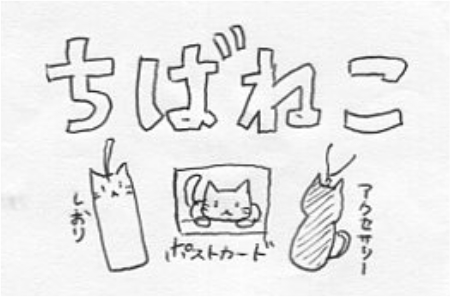 ちばねこ
しおり
ポストカード
アクセサリー